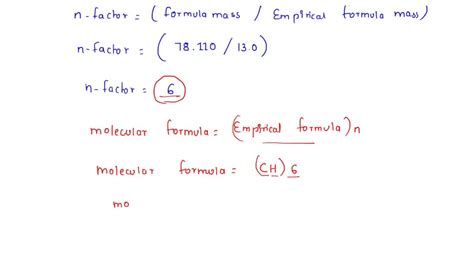 n-factor = ( formula mass / Empirical formula mass)
n-factor = ( 78.110 / 13.0 )
n-factor = 6
molecular formula = (Empirical formula) n
molecular formula = (CH) 6
mo